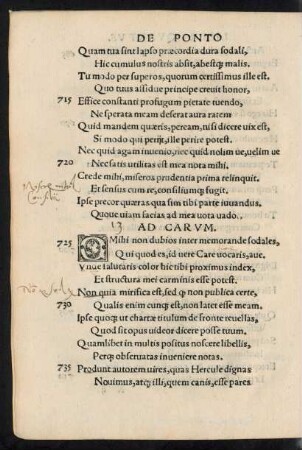 DE PONTO
Quam tua sint lapso præcordia dura sodali,
Hic cumulus nostris absit, abestq; malis.
Tu modo per superos, quorum certissimus ille est.
Quo tuus assidue principe creuit honor,
715 Effice constanti profugum pietate tuendo,
Ne sperata meam deserat aura ratem
Quid mandem quæris, peream, nisi dicere uix est,
Si modo qui perijt, ille perire potest.
Nec quid agam inuenio, nec quid nolim ue, uelim ue
720 Nec satis utilitas est mea nota mihi.
Crede mihi, miseros prudentia prima relinquit.
Et sensus cum re, consiliumq; fugit.
Ipse precor quæras qua sim tibi parte iuuandus.
Quoue uiam facias ad mea uota uado.
13 AD CARVM.
725 O Mihi non dubios inter memorande sodales,
Qui quod es, id uere Care uocaris, aue.
Vnde salutaris color hic tibi proximus index,
Et structura mei carminis esse potest.
Non quia mirifica est, sed q̃ non publica certe,
730 Qualis enim cunq; est, non latet esse meam.
Ipse quoq; ut chartæ titulum de fronte reuellas,
Quod sit opus uideor dicere posse tuum.
Quamlibet in multis positus noscere libellis,
Perq; obseruatas inueniere notas.
735 Produnt autorem uires, quas Hercule dignas
Nouimus, atq; illi, quem canis, esse pares